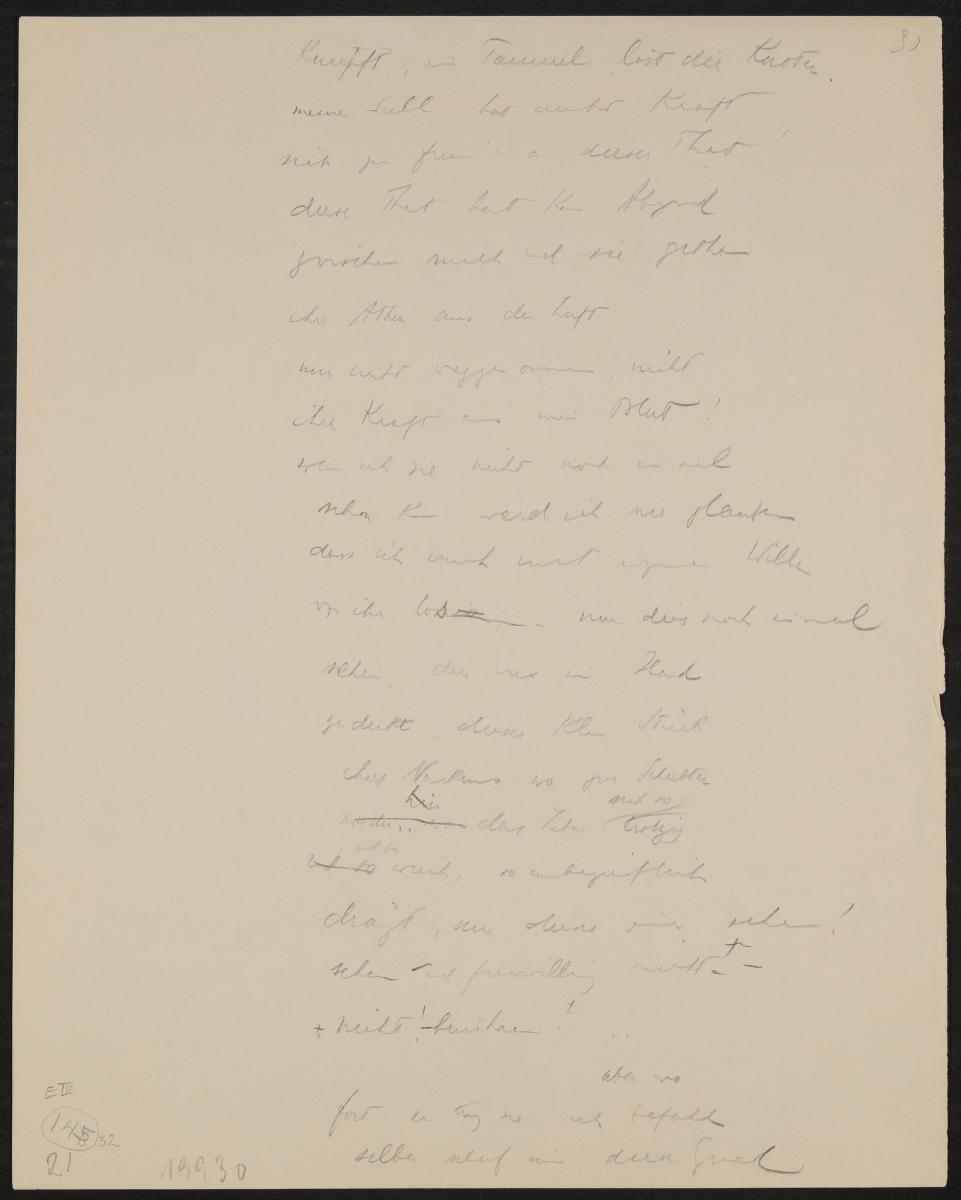 30
Knüpft, im Taumel löst die Knoten.
meine Seele hat nicht Kraft
sich zu freun an dieser That!
diese That hat kein Abgrund
zwischen mich und sie gethan
ihre Athem aus der Luft
mir nicht weggenommen, nicht
ihre Kraft aus mein Blut!
wen ich sie nicht noch einmal
sehen kan werd ich nie glauben
dass ich mich mit eigenem Willen
von ihr los – nur dies noch einmal
sehen, dies was ein Hand
zudeckt, dieses kleine Stück
ihres Nackens wo zur Schulter
hin
sich so
das Leben trotzig
und so
und so weich, so unbegreiflich
drägt, nur dieses eine sehen!
sehen und freiwillig nicht –
+ nicht! – berühren!
aber wo
fort er trug sie ich befahl
selber schuf mir diese Qual
E III
145 32
21
19930